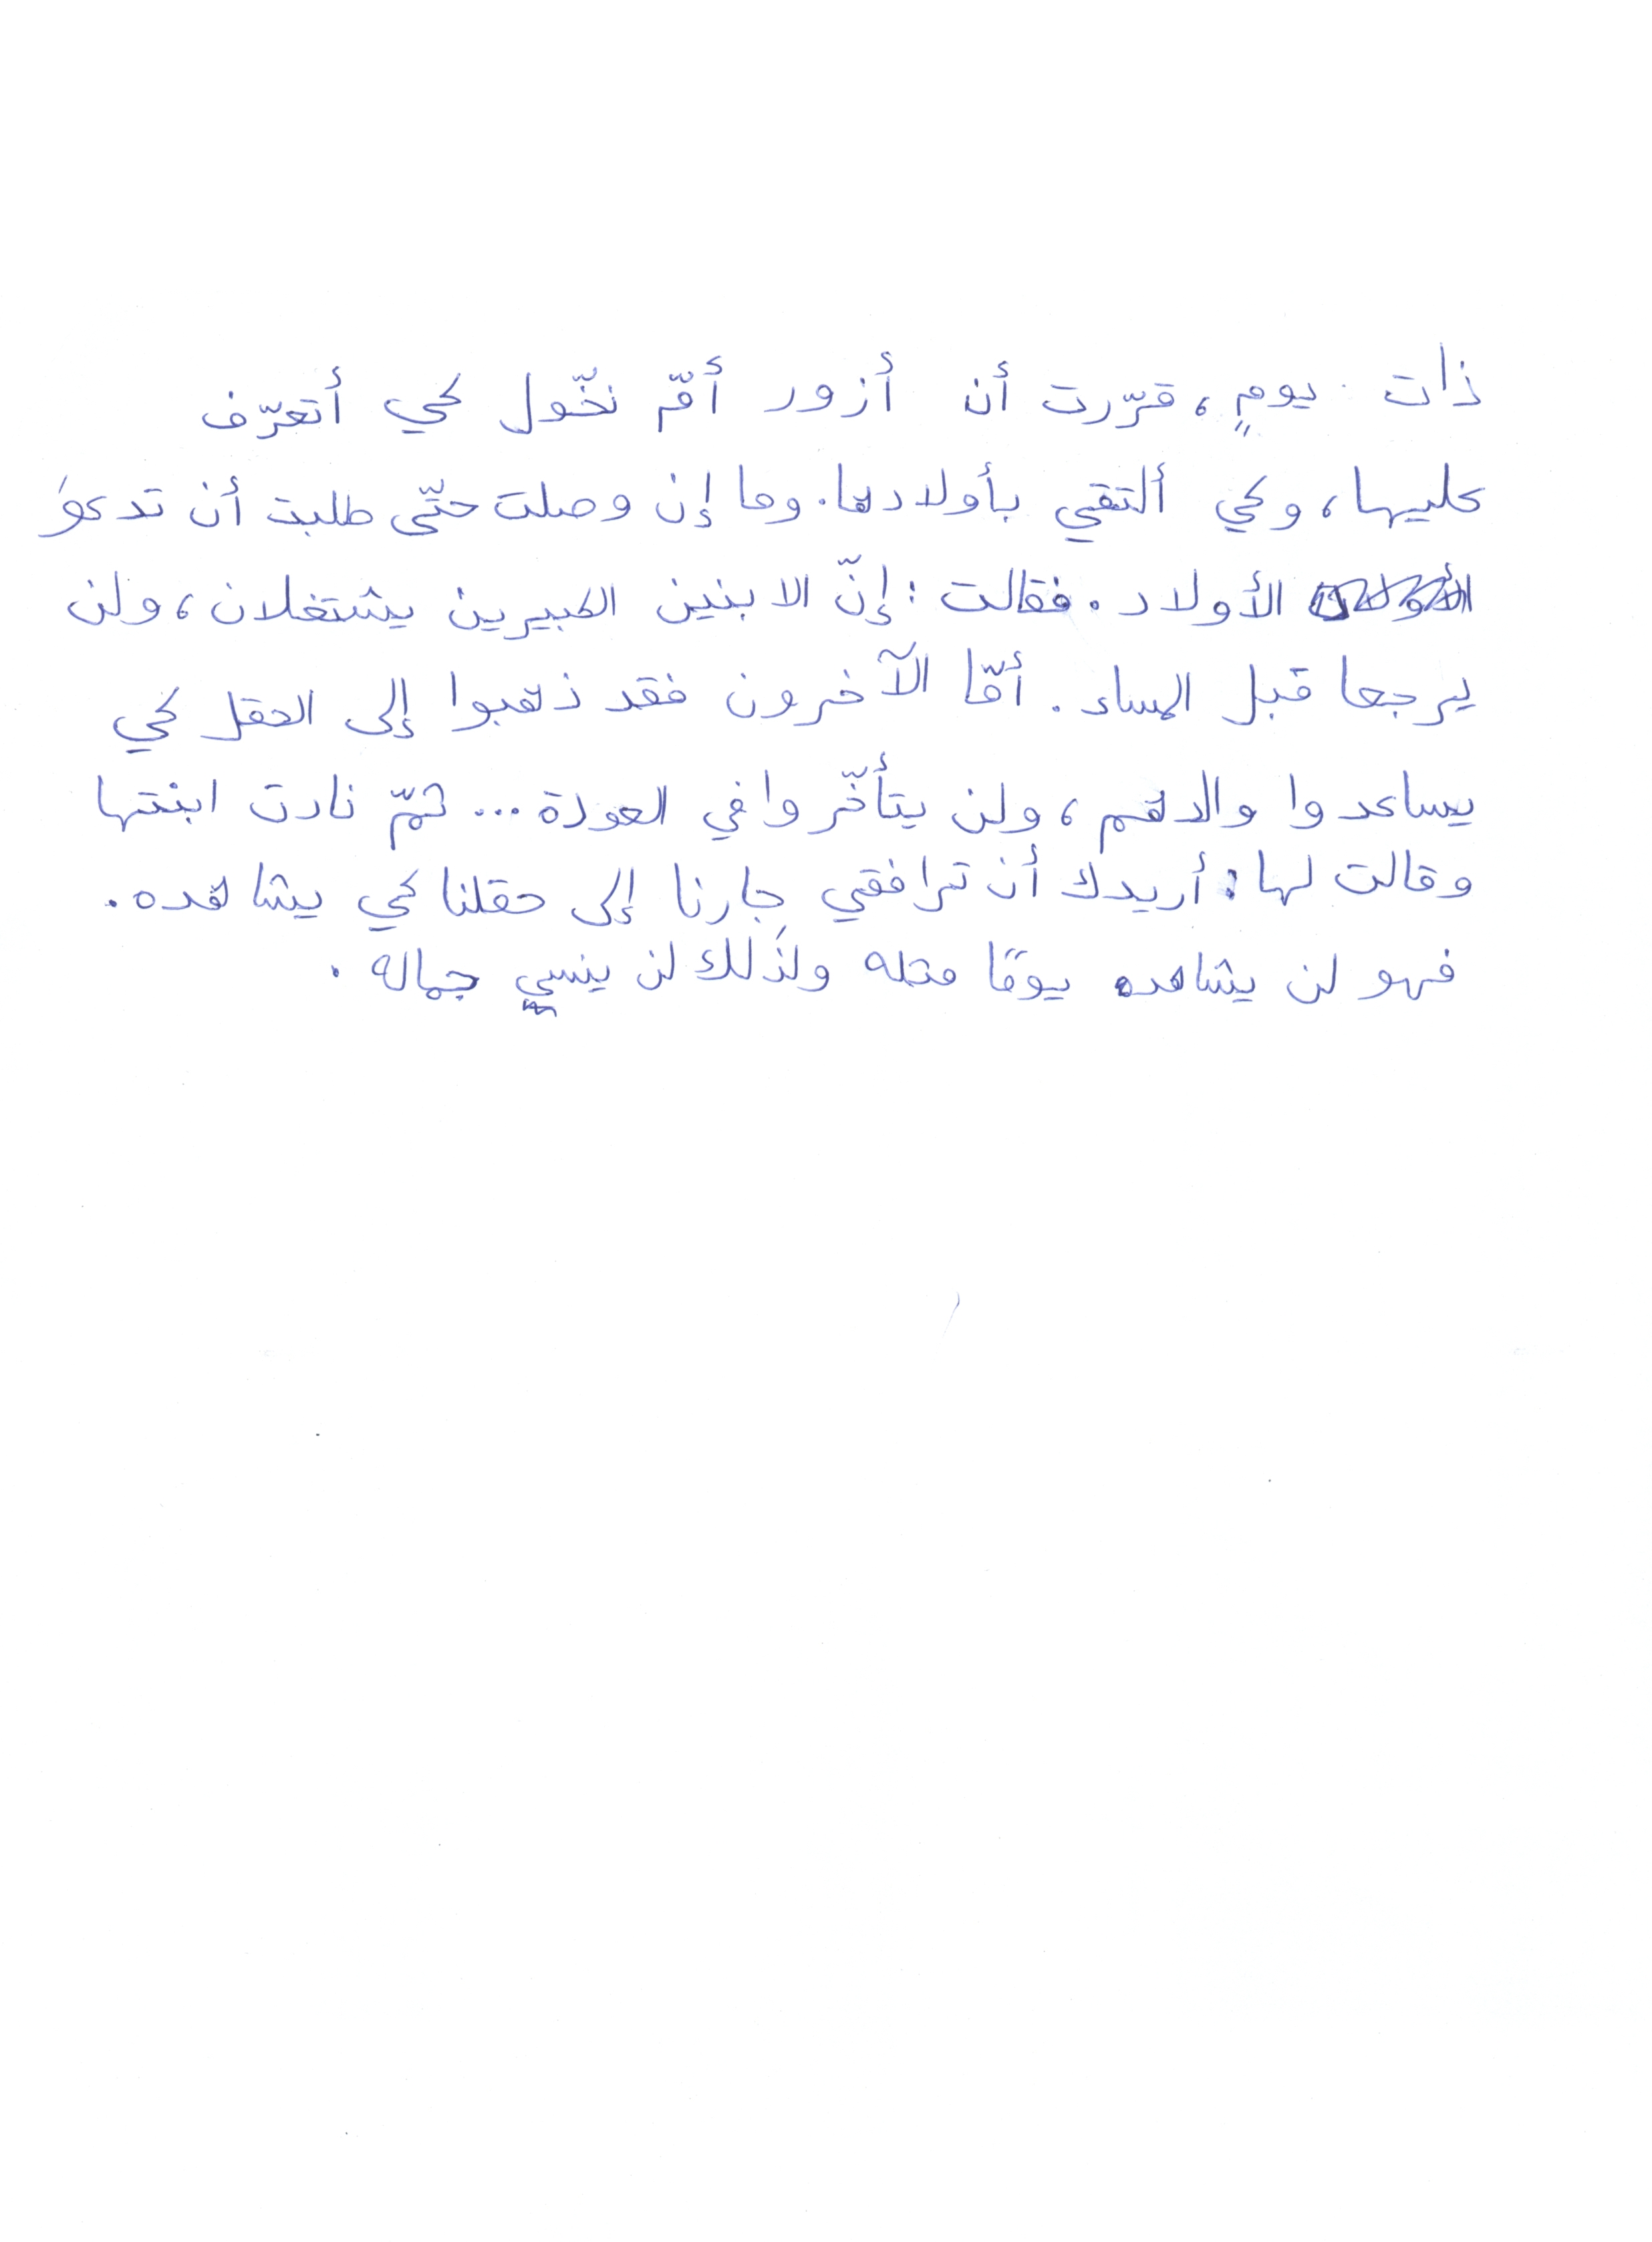 ذات يومٍ، قرّرت أن أزور أمّ نخّول كي أتعرّف
عليها، وكي ألتقي بأولادها. وما إن وصلت حتّى طلبت أن تدعوَ
الأولاد. فقالت: إنّ الابنين الكبيرين يشتغلان، ولن
يرجعا قبل المساء. أمّا الآخرون فقد ذهبوا إلى الحقل كي
يساعدوا والدهم، ولن يتأخّروا في العودة... ثمّ نادت ابنتها
وقالت لها: أريدك أن ترافقي جارنا إلى حقلنا كي يشاهده.
فهو لن يشاهده يومًا مثله ولذَلك لن ينسي جماله.